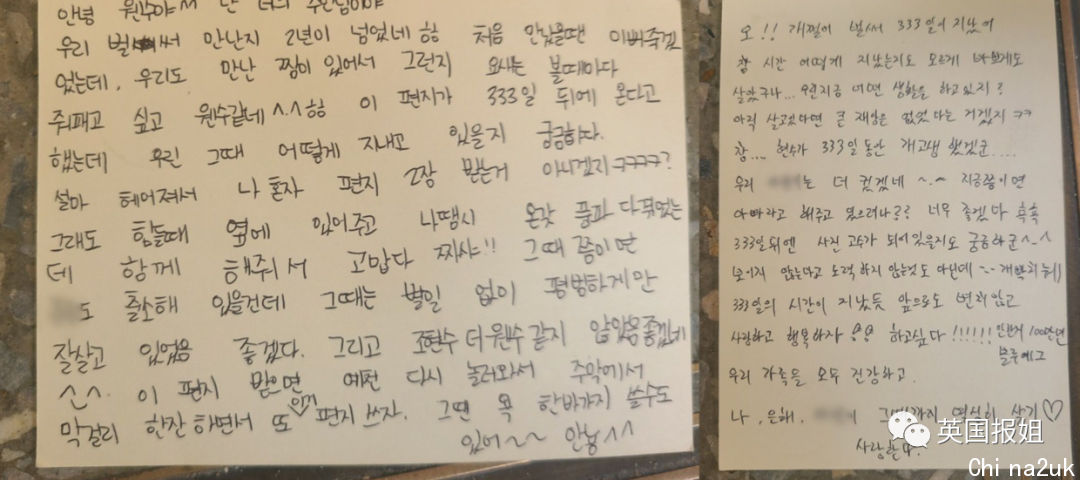 안녕 원수야~ 난 너의 주인님이야
우리 벌써 만난지 2년이 넘었네 힝 처음 만났을땐 이뻐죽겠
었는데, 우리도 만난 찜이 있어서 그런지 요새는 볼때마다
줘패고 싶고 원수같네^.^힝 이 편지가 333일 뒤에 온다고
했는데 우린 그때 어떻게 지내고 있을지 궁금하다.
설마 헤어져서 나 혼자 편지 2장 받는거 아니겠지ㅋㅋㅋㅋ?
그래도 힘들때 옆에 있어주고 나땜시 온갖 풍파 다 겪었는
데 함께 해줘서 고맙다 찌샤!! 그때 쯤이면
도 출소해 있을건데 그때는 별일 없이 평범하게만
잘살고 있었음 좋겠다. 그리고 조현수 더 원수 같지 않았음 좋겠네
^.^. 이 편지 받으면 예전 다시 놀러와서 주막에서
막걸리 한잔 하면서 또 편지 쓰자. 그땐 욕 한바가지 쓸수도
있어~~ 안뇽^^
오!! 개쩔어 벌써 333일이 지났어
참 시간 어떻게 지났는지도 모르게 바쁘게도
살았구나... 지금 어떤 생활을 하고 있지?
아직 살고있다면 큰 재앙은 없었다는 거겠지 ㅋㅋ
참.... 현수가 333일 동안 개고생 했겠군.....
우리 는 더 컸겠네 ~.~ 지금쯤이면
아빠라고 해주고 있으려나?? 너무 좋겠다 흑흑
333일뒤엔 사진 고수가 되어있을지도 궁금하군^-^
보이지 않는다고 노력하지 않는것도 아닌데
333일의 시간이 지났듯 앞으로도 변치않고
사랑하고 행복하자 하고싶다!!!!!!
우리 가족들 모두 건강하고.
나, 은해, 살기♡
사랑한다.
英国报姐
China2uk